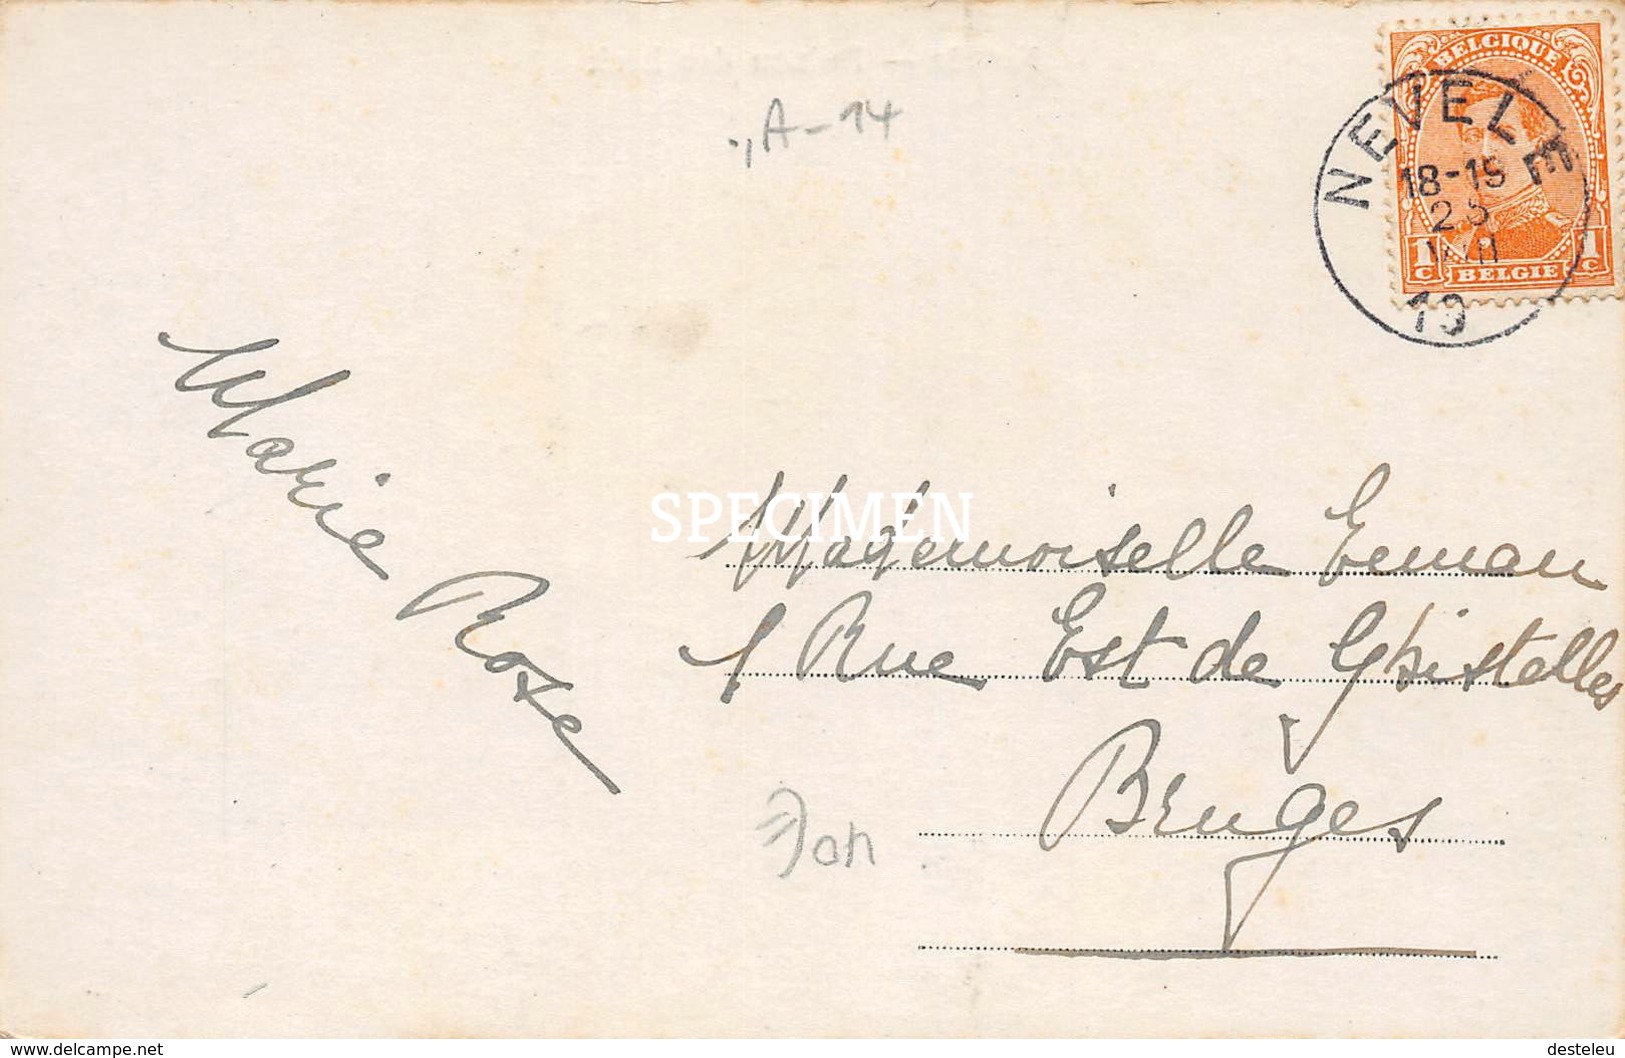 A-14
BELGIQUE
NEVELE
18-19
25
VIII
19
1 C
1 C
BELGIE
Marie Rose
SPECIMEN
Mademoiselle Eeman
1 Rue Est de Ghistelles
Bruges
www.delcampe.net
desteleu